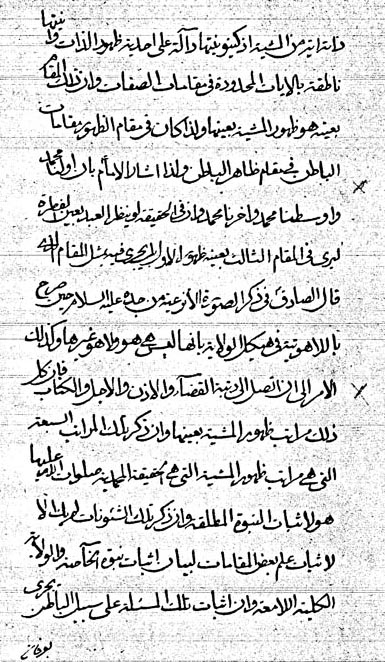 وانه اية من المشية اذ كينونيتها دالة على احدية ظهور الذات وانيتها
ناطقة بالايات المحدودة فى مقامات الصفات وان ذلك المقام
بعينه هو ظهور المشية بعينها ولذا كان فى مقام الظهور مقامات
الباطن فى مقام ظاهر الباطن ولذا اشار الامام بان اولنا محمد
واوسطنا محمد واخرنا محمد وان فى الحقيقة لو ينظر العبد بعين الفطرة
ليرى فى المقام الثالث بعينه ظهور الاول ليجرى فيه مثل المقام
قال الصادق فى ذكر الصورة الأنزعية من جده عليه السلام حين صرح
باللاهوتية فى هيكل الولاية بانها ليس هى هو ولا هو غيرها وكذلك
الامر الى ان تصل الى رتبة القضاء والاذن والاجل والكتاب فان كل
ذلك مراتب ظهور المشية بعينها وان ذكر تلك المراتب السبعة
التى هى مراتب ظهور المشية التى هى الحقيقة المحمدية صلوات الله عليها
هو لاثبات النبوة المطلقة وان ذكر تلك الشئونات لم يك الا
لاثبات علم بعض المقامات لبيان اثبات نبوة الخاصة والولاية
الكلية اللامعة وان اثبات تلك المسئلة على سبيل الباطن يجرى